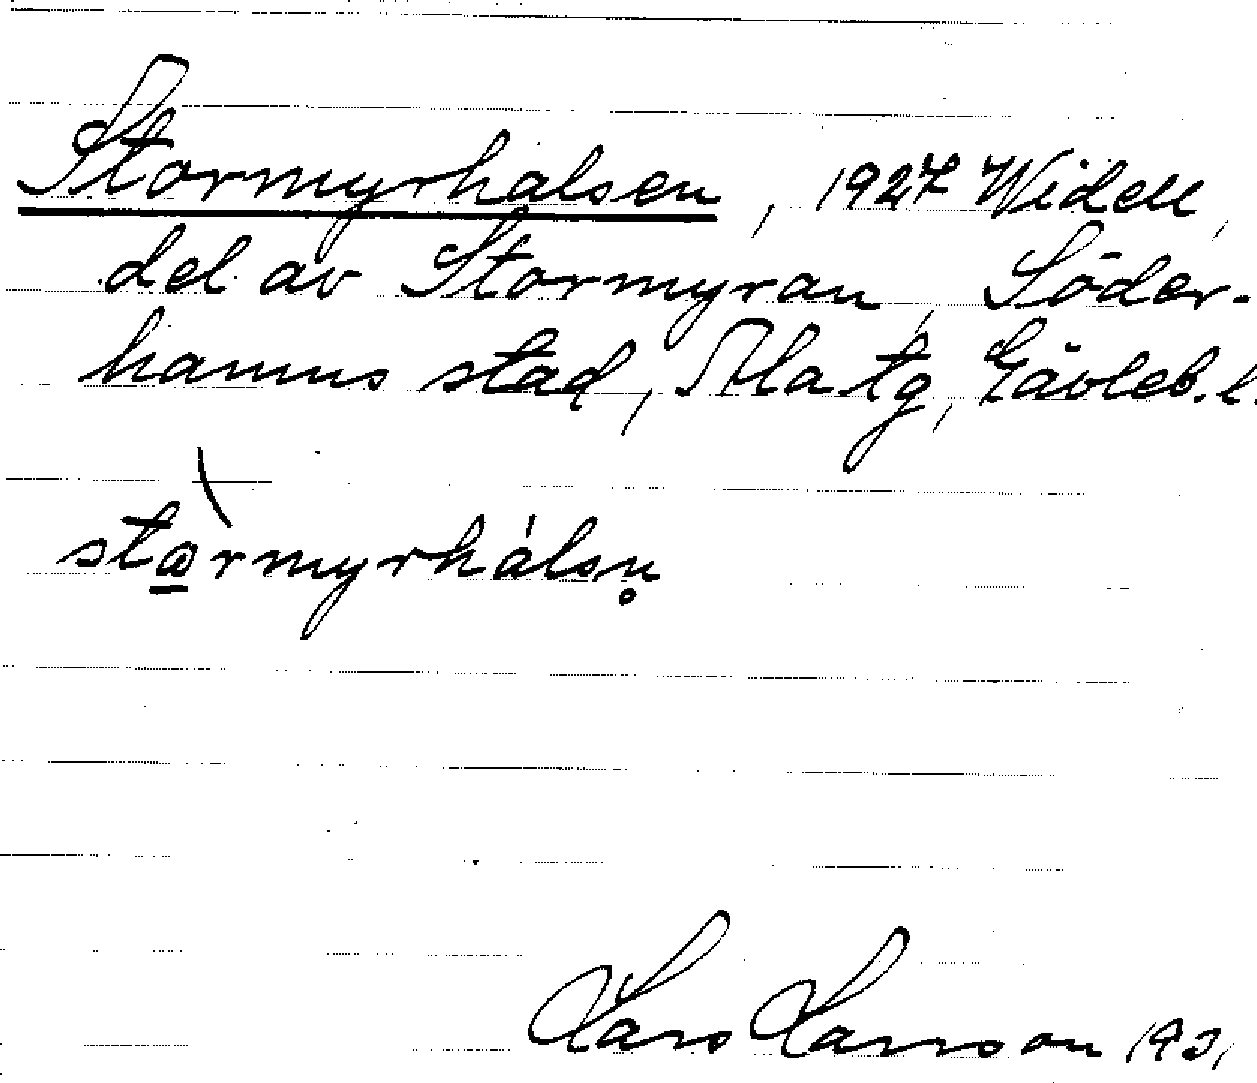 Stormyrhalsen, 1927 Widell,
del av Stormyran, Söder-
hamns stad, Ala tg, Gävleb. l.
stårmyrhálsn̥
Lars Larsson